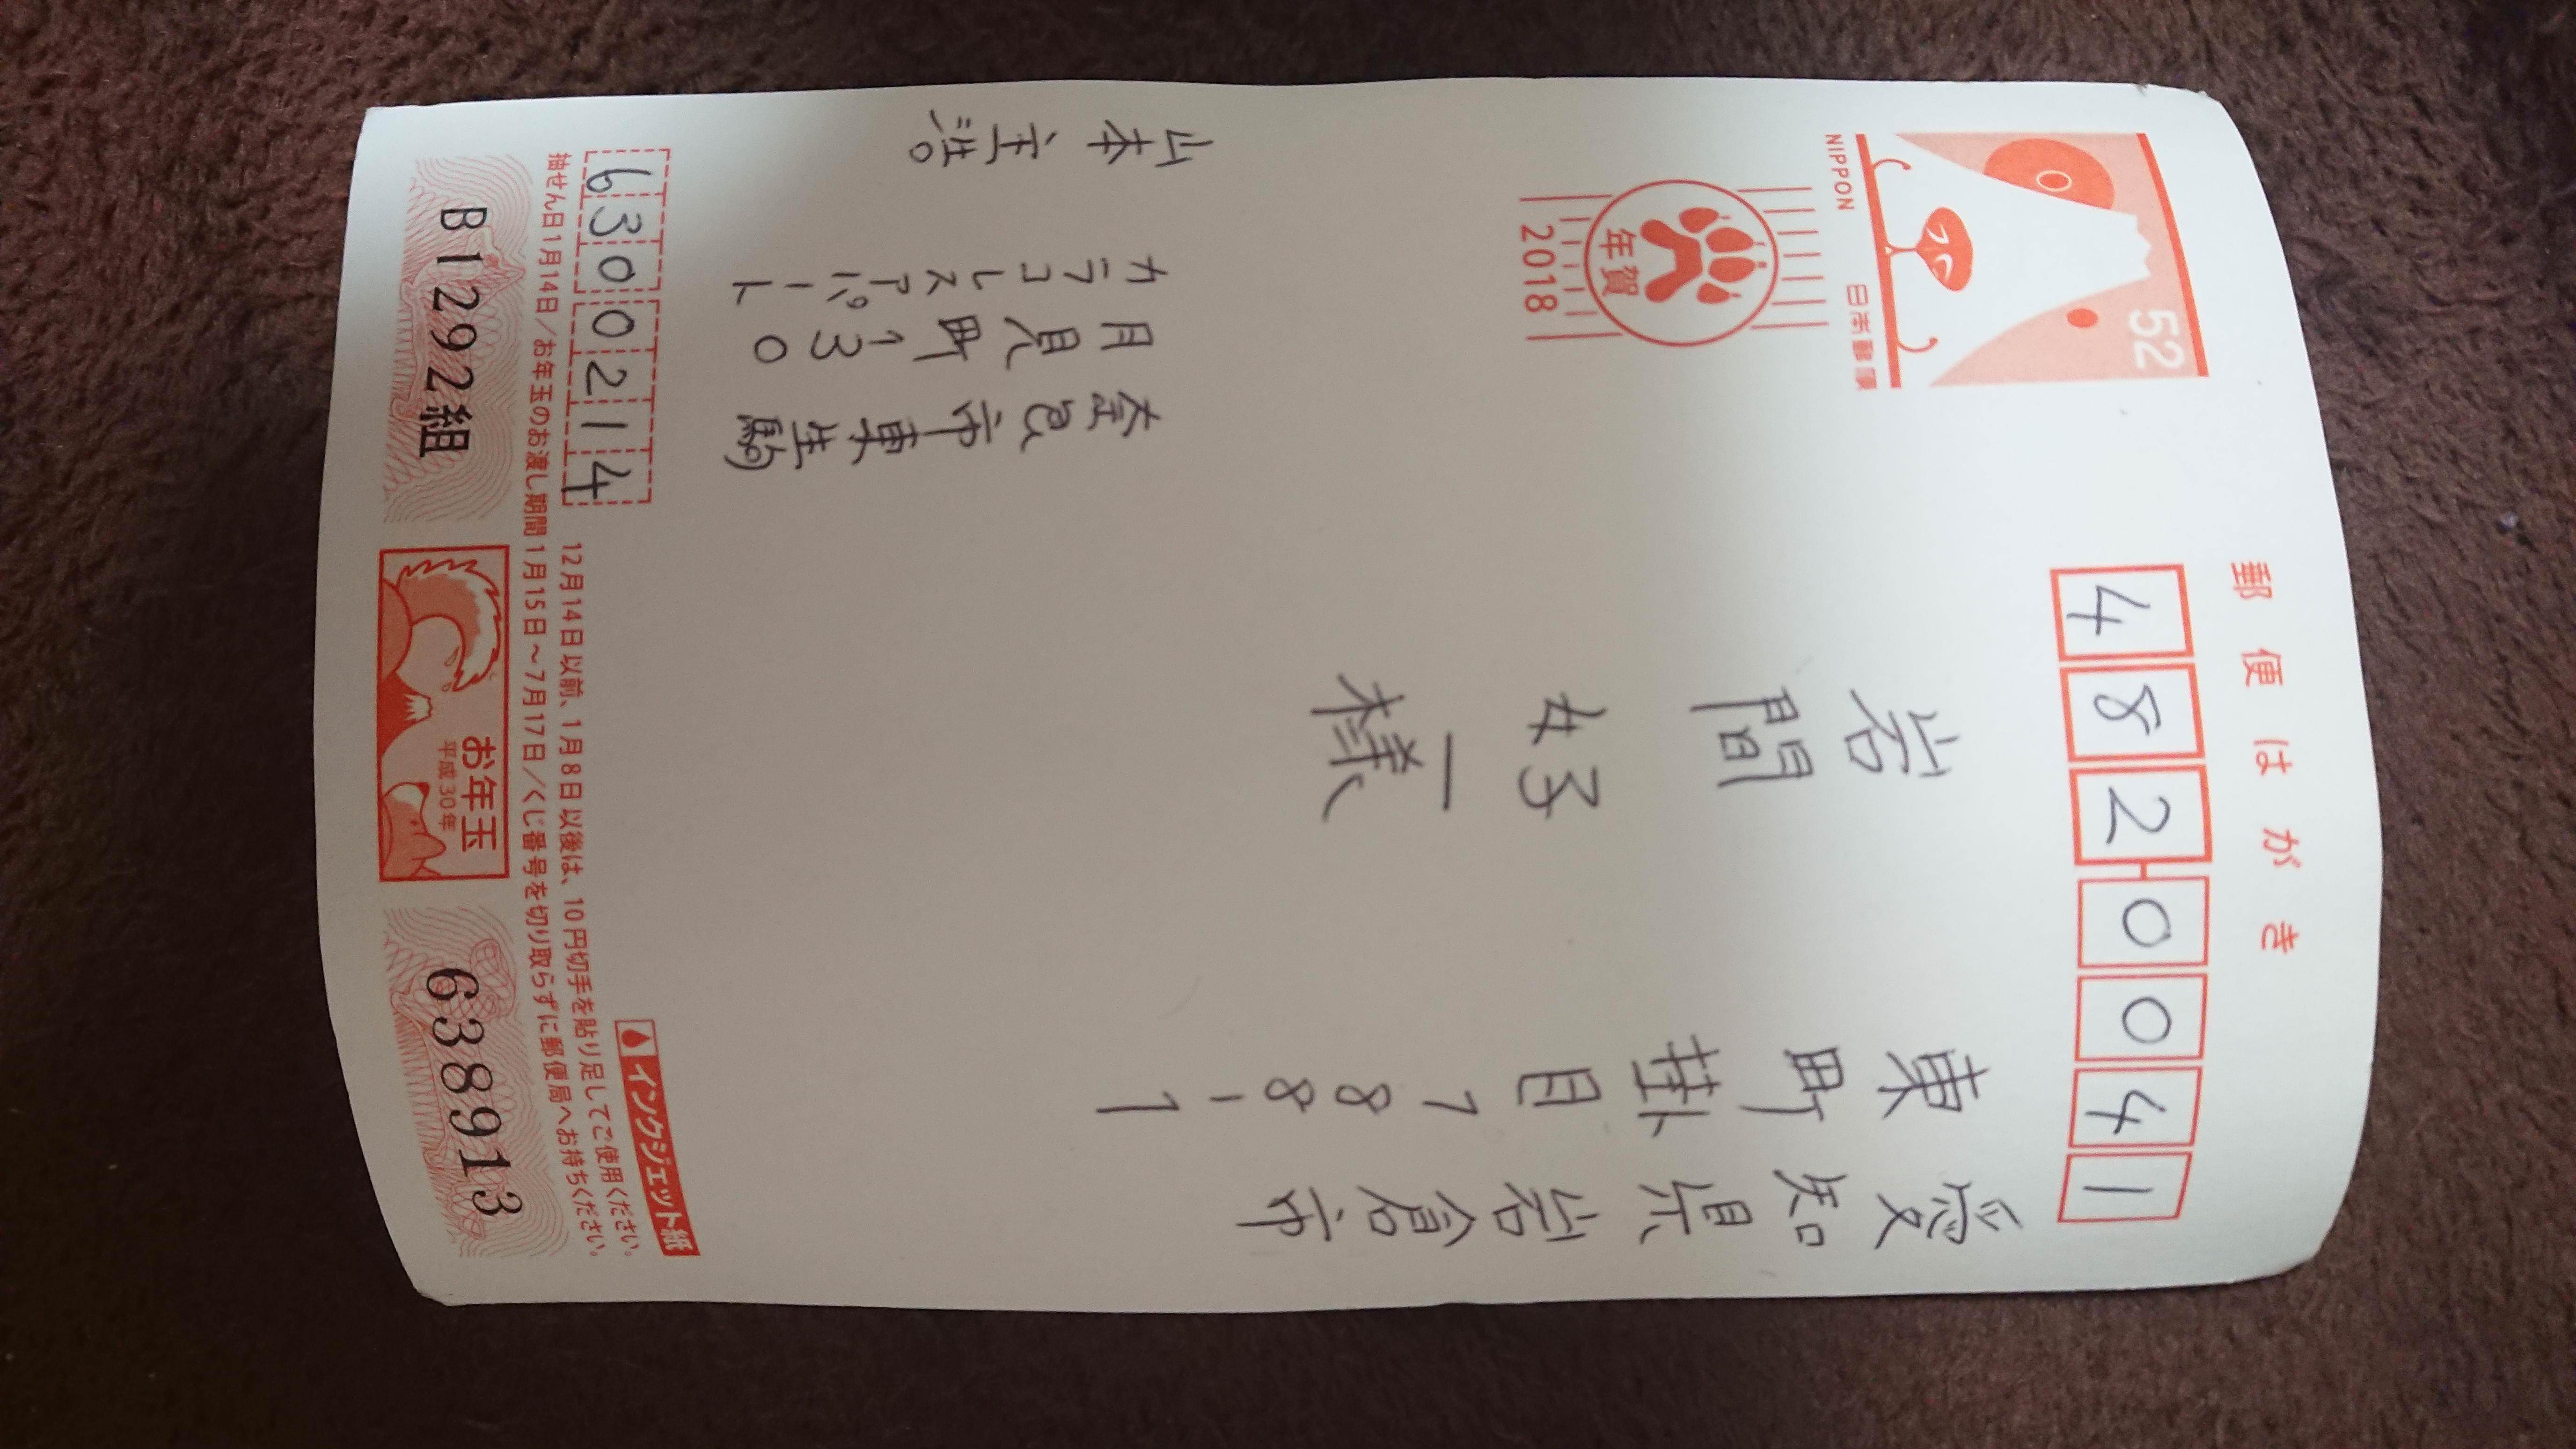 郵便はがき
482-0041
52
NIPPON
日本郵便
年賀
2018
愛知県岩倉市
東町掛目788-1
岩間好一様
奈良市東生駒
月見町130
カラコレスアパート
山本
6300214
インクジェット紙
12月14日以前、1月8日以後は、10円切手を貼り足してご使用ください。
抽せん日1月14日/お年玉のお渡し期間1月15日~7月17日/くじ番号を切り取らずに郵便局へお持ちください。
B1292組
お年玉
平成30年
638913